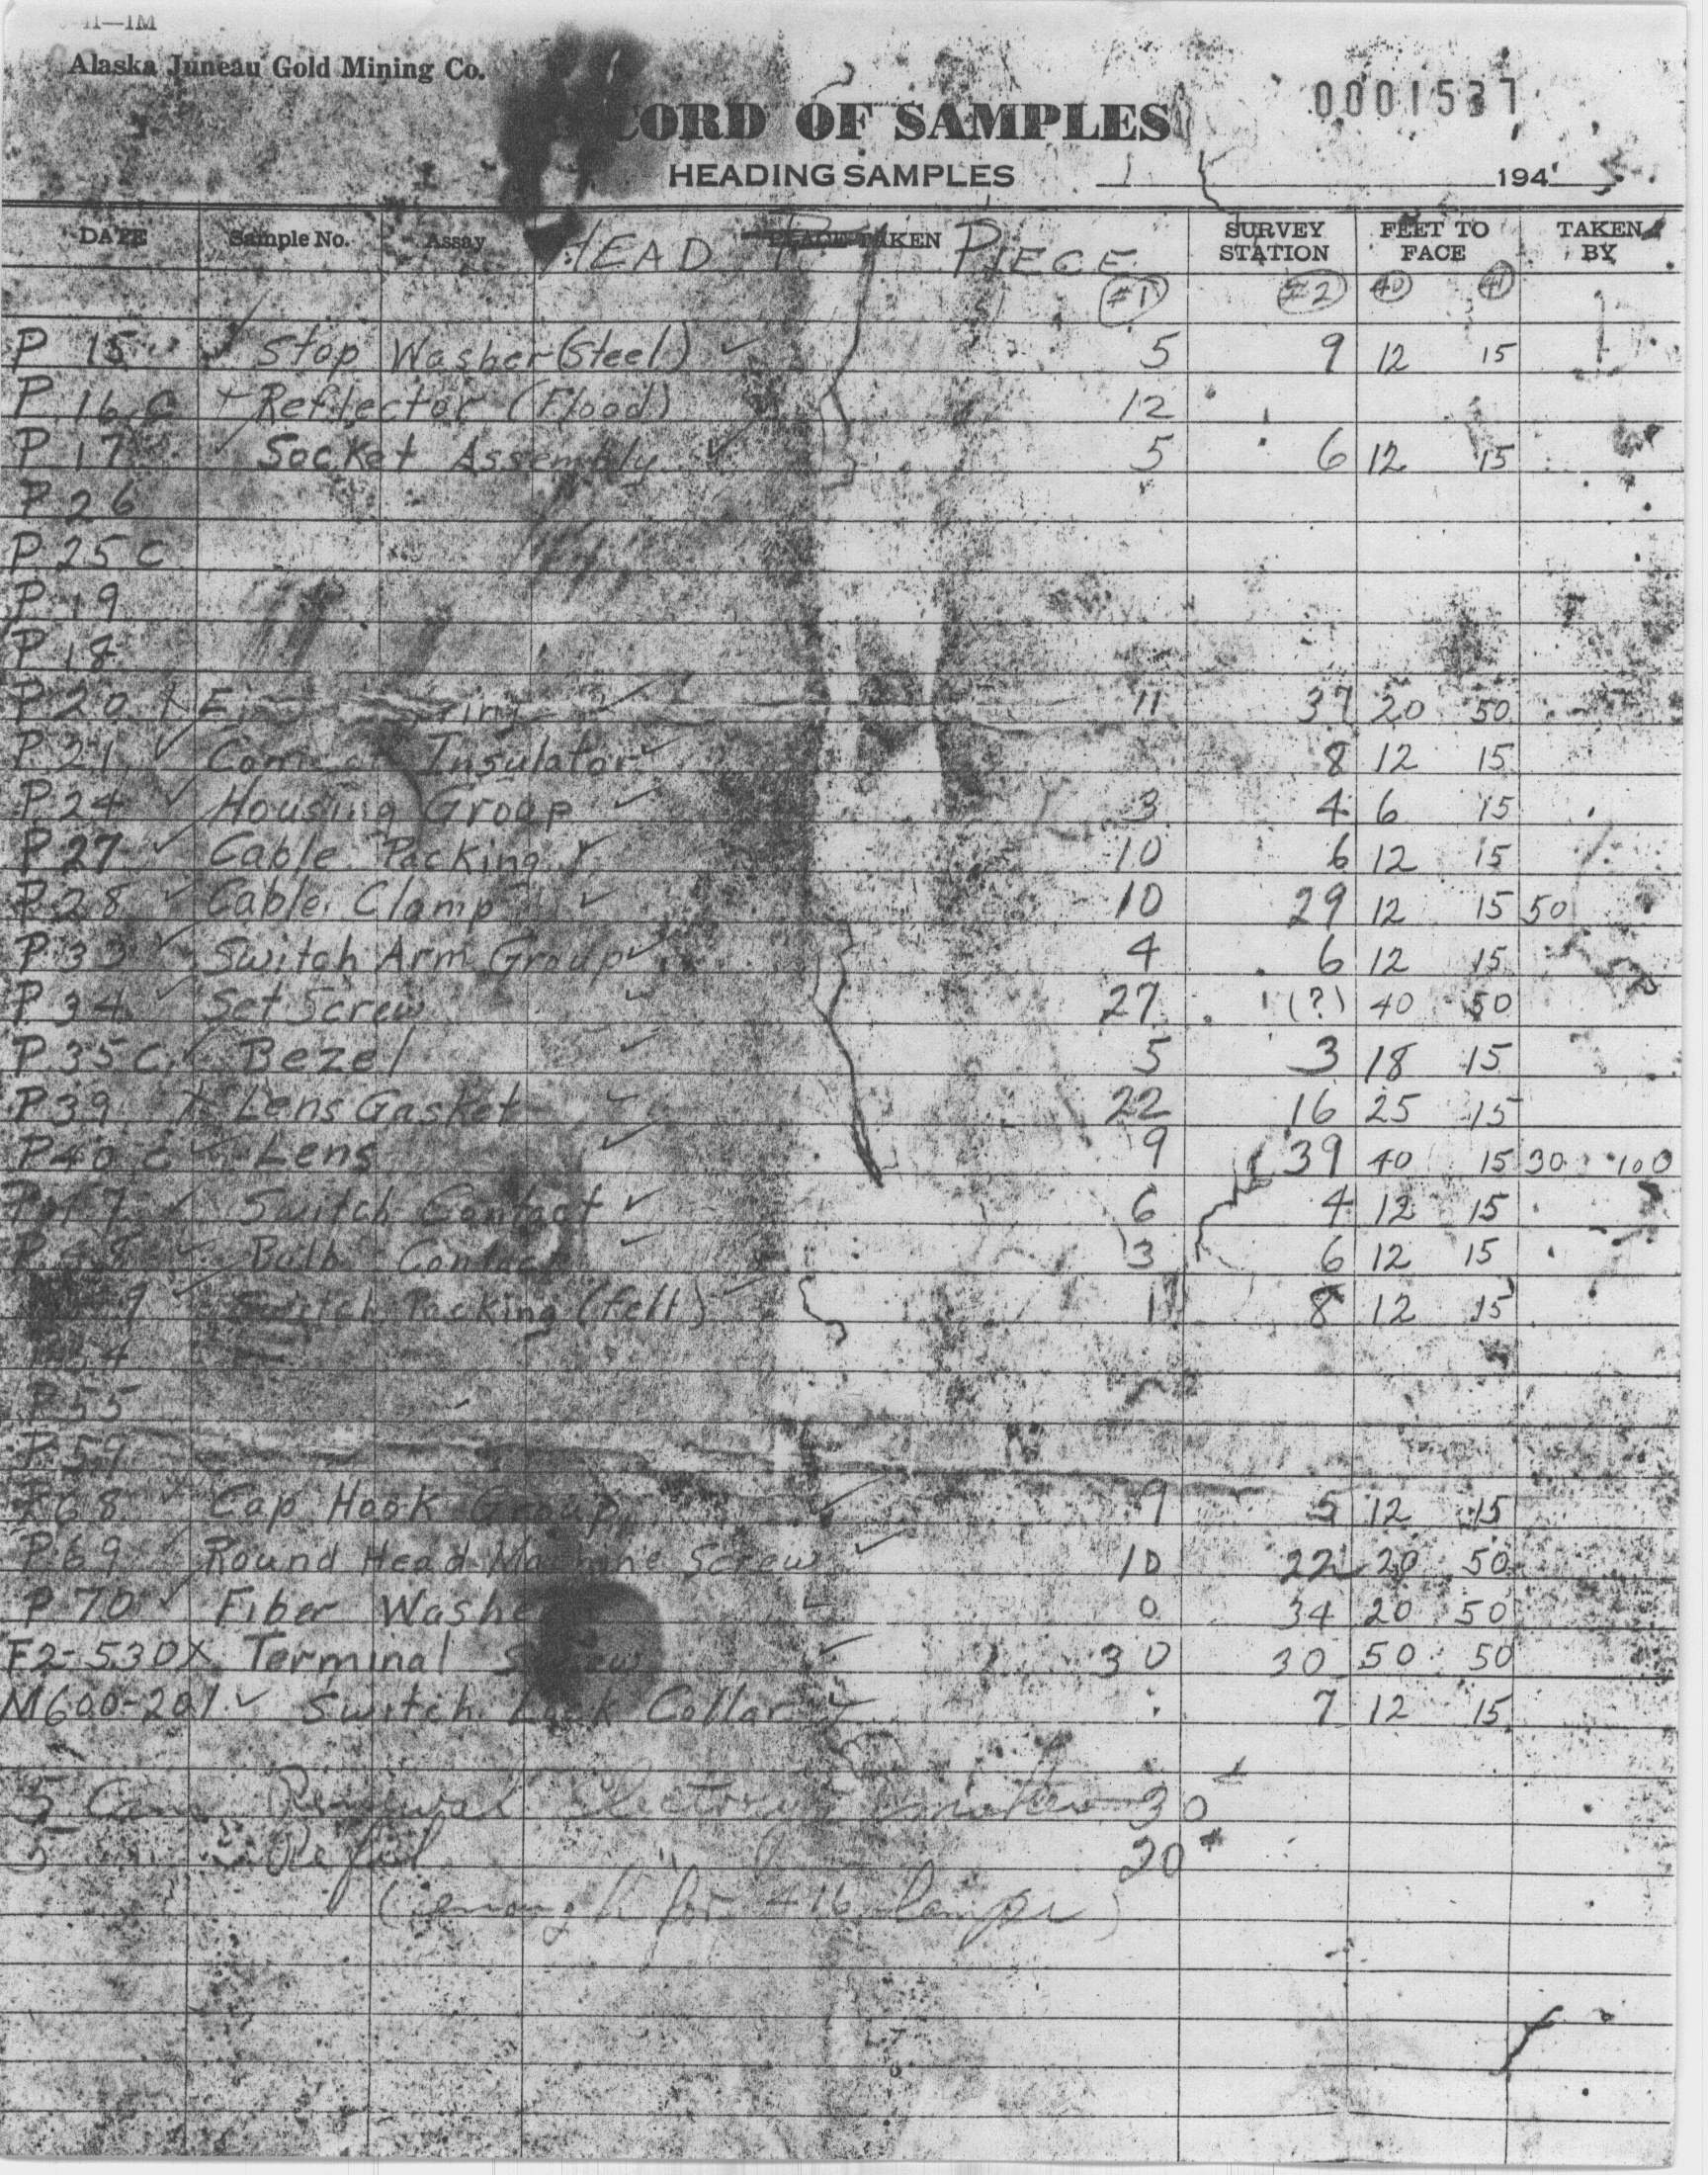 41—1M
Alaska Juneau Gold Mining Co.
0001537
CORD OF SAMPLES
HEADING SAMPLES 194
DATE Sample No. Assay PLACE TAKEN SURVEY STATION FEET TO FACE TAKEN BY
HEAD PIECE
#1 #2 40 41
P 15 ✓ Stop Washer (Steel) ✓ 5 9 12 15
P 16 C Reflector (Flood) 12
P 17 ✓ Socket Assembly ✓ 5 6 12 15
P 26
P 25 C
P 19
P 18
P 20 ✓ 11 37 20 50
P 21 ✓ Insulator ✓ 8 12 15
P 24 ✓ Housing Group ✓ 3 4 6 15
P 27 ✓ Cable Packing 10 6 12 15
P 28 ✓ Cable Clamp ✓ 10 29 12 15 50
P 33 ✓ Switch Arm Group ✓ 4 6 12 15
P 34 ✓ Set Screw ✓ 27 (?) 40 50
P 35 C ✓ Bezel ✓ 5 3 18 15
P 39 X Lens Gasket ✓ 22 16 25 15
P 40 C ✓ Lens ✓ 9 39 40 15 30 100
✓ Switch Contact ✓ 6 4 12 15
✓ Bulb Contact ✓ 3 6 12 15
✓ Switch Packing (felt) ✓ 1 8 12 15
P 55
P 59
P 68 ✓ Cap Hook Group ✓ 9 5 12 15
P 69 ✓ Round Head Machine Screw ✓ 10 22 20 50
P 70 ✓ Fiber Washer ✓ 0 34 20 50
F2-530X Terminal Screw ✓ 30 30 50 50
M600-201 ✓ Switch Lock Collar ✓ 7 12 15
5 Cans Renewal 30
5 Refill 20
(enough for 416 lamps)